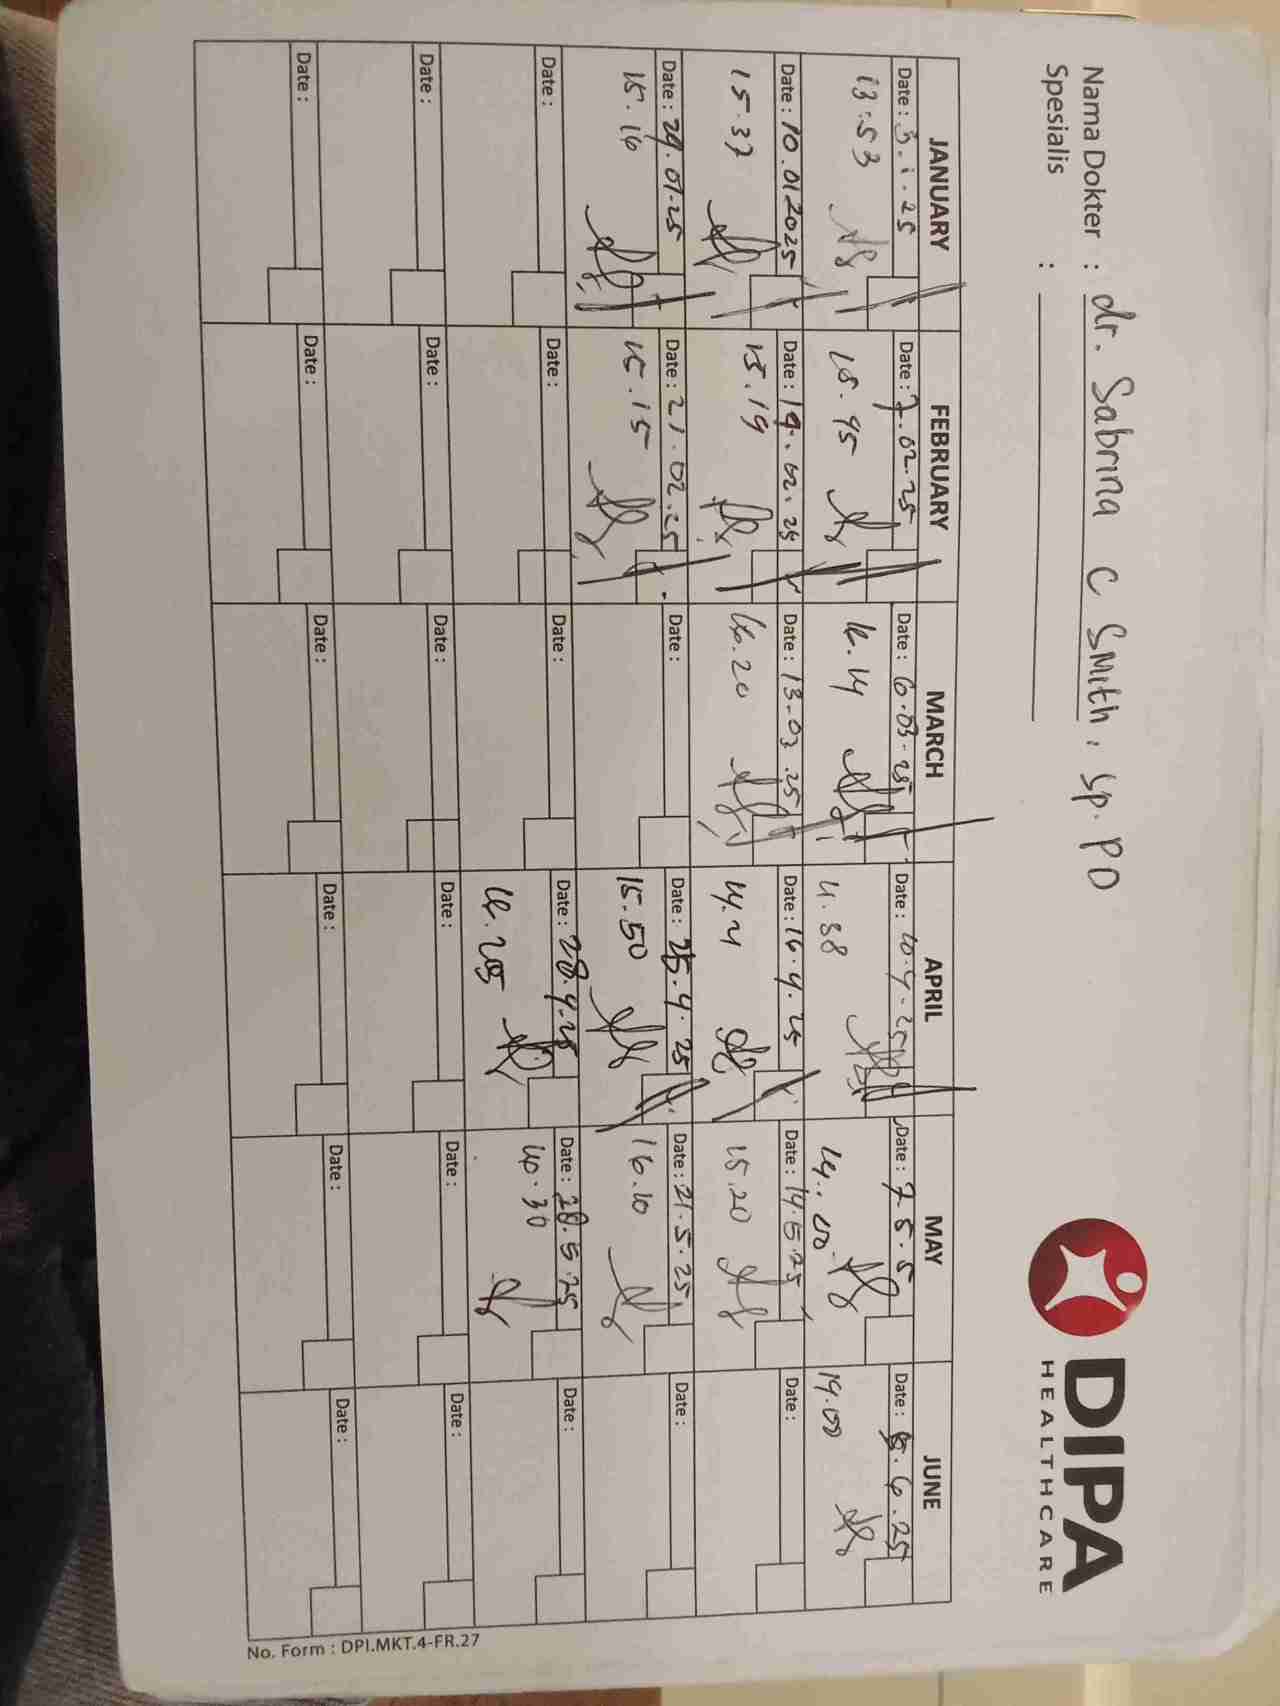 Nama Dokter : dr. Sabrina C Smith, Sp. PD
Spesialis :
DIPA
HEALTHCARE
JANUARY FEBRUARY MARCH APRIL MAY JUNE
Date : 3.1.25 Date : 7.02.25 Date : 6.03-25 Date : 10.4.25 Date : 7.5.5 Date : 5.6.25
13:53 15.45 14.14 11.38 14.00 19.00
Date : 10.012025 Date : 14.02.25 Date : 13.03.25 Date : 16.4.25 Date : 14.5.25 Date :
15.37 15.19 14.20 14.21 15.20
Date : 29.01.25 Date : 21.02.25 Date : Date : 25.4.25 Date : 21.5.25 Date :
15.16 15.15 15.50 16.10
Date : Date : Date : Date : 28.4.25 Date : 28.5.25 Date :
14.30
Date : Date : Date : Date : Date : Date :
Date : Date : Date : Date : Date : Date :
No. Form : DPI.MKT.4-FR.27